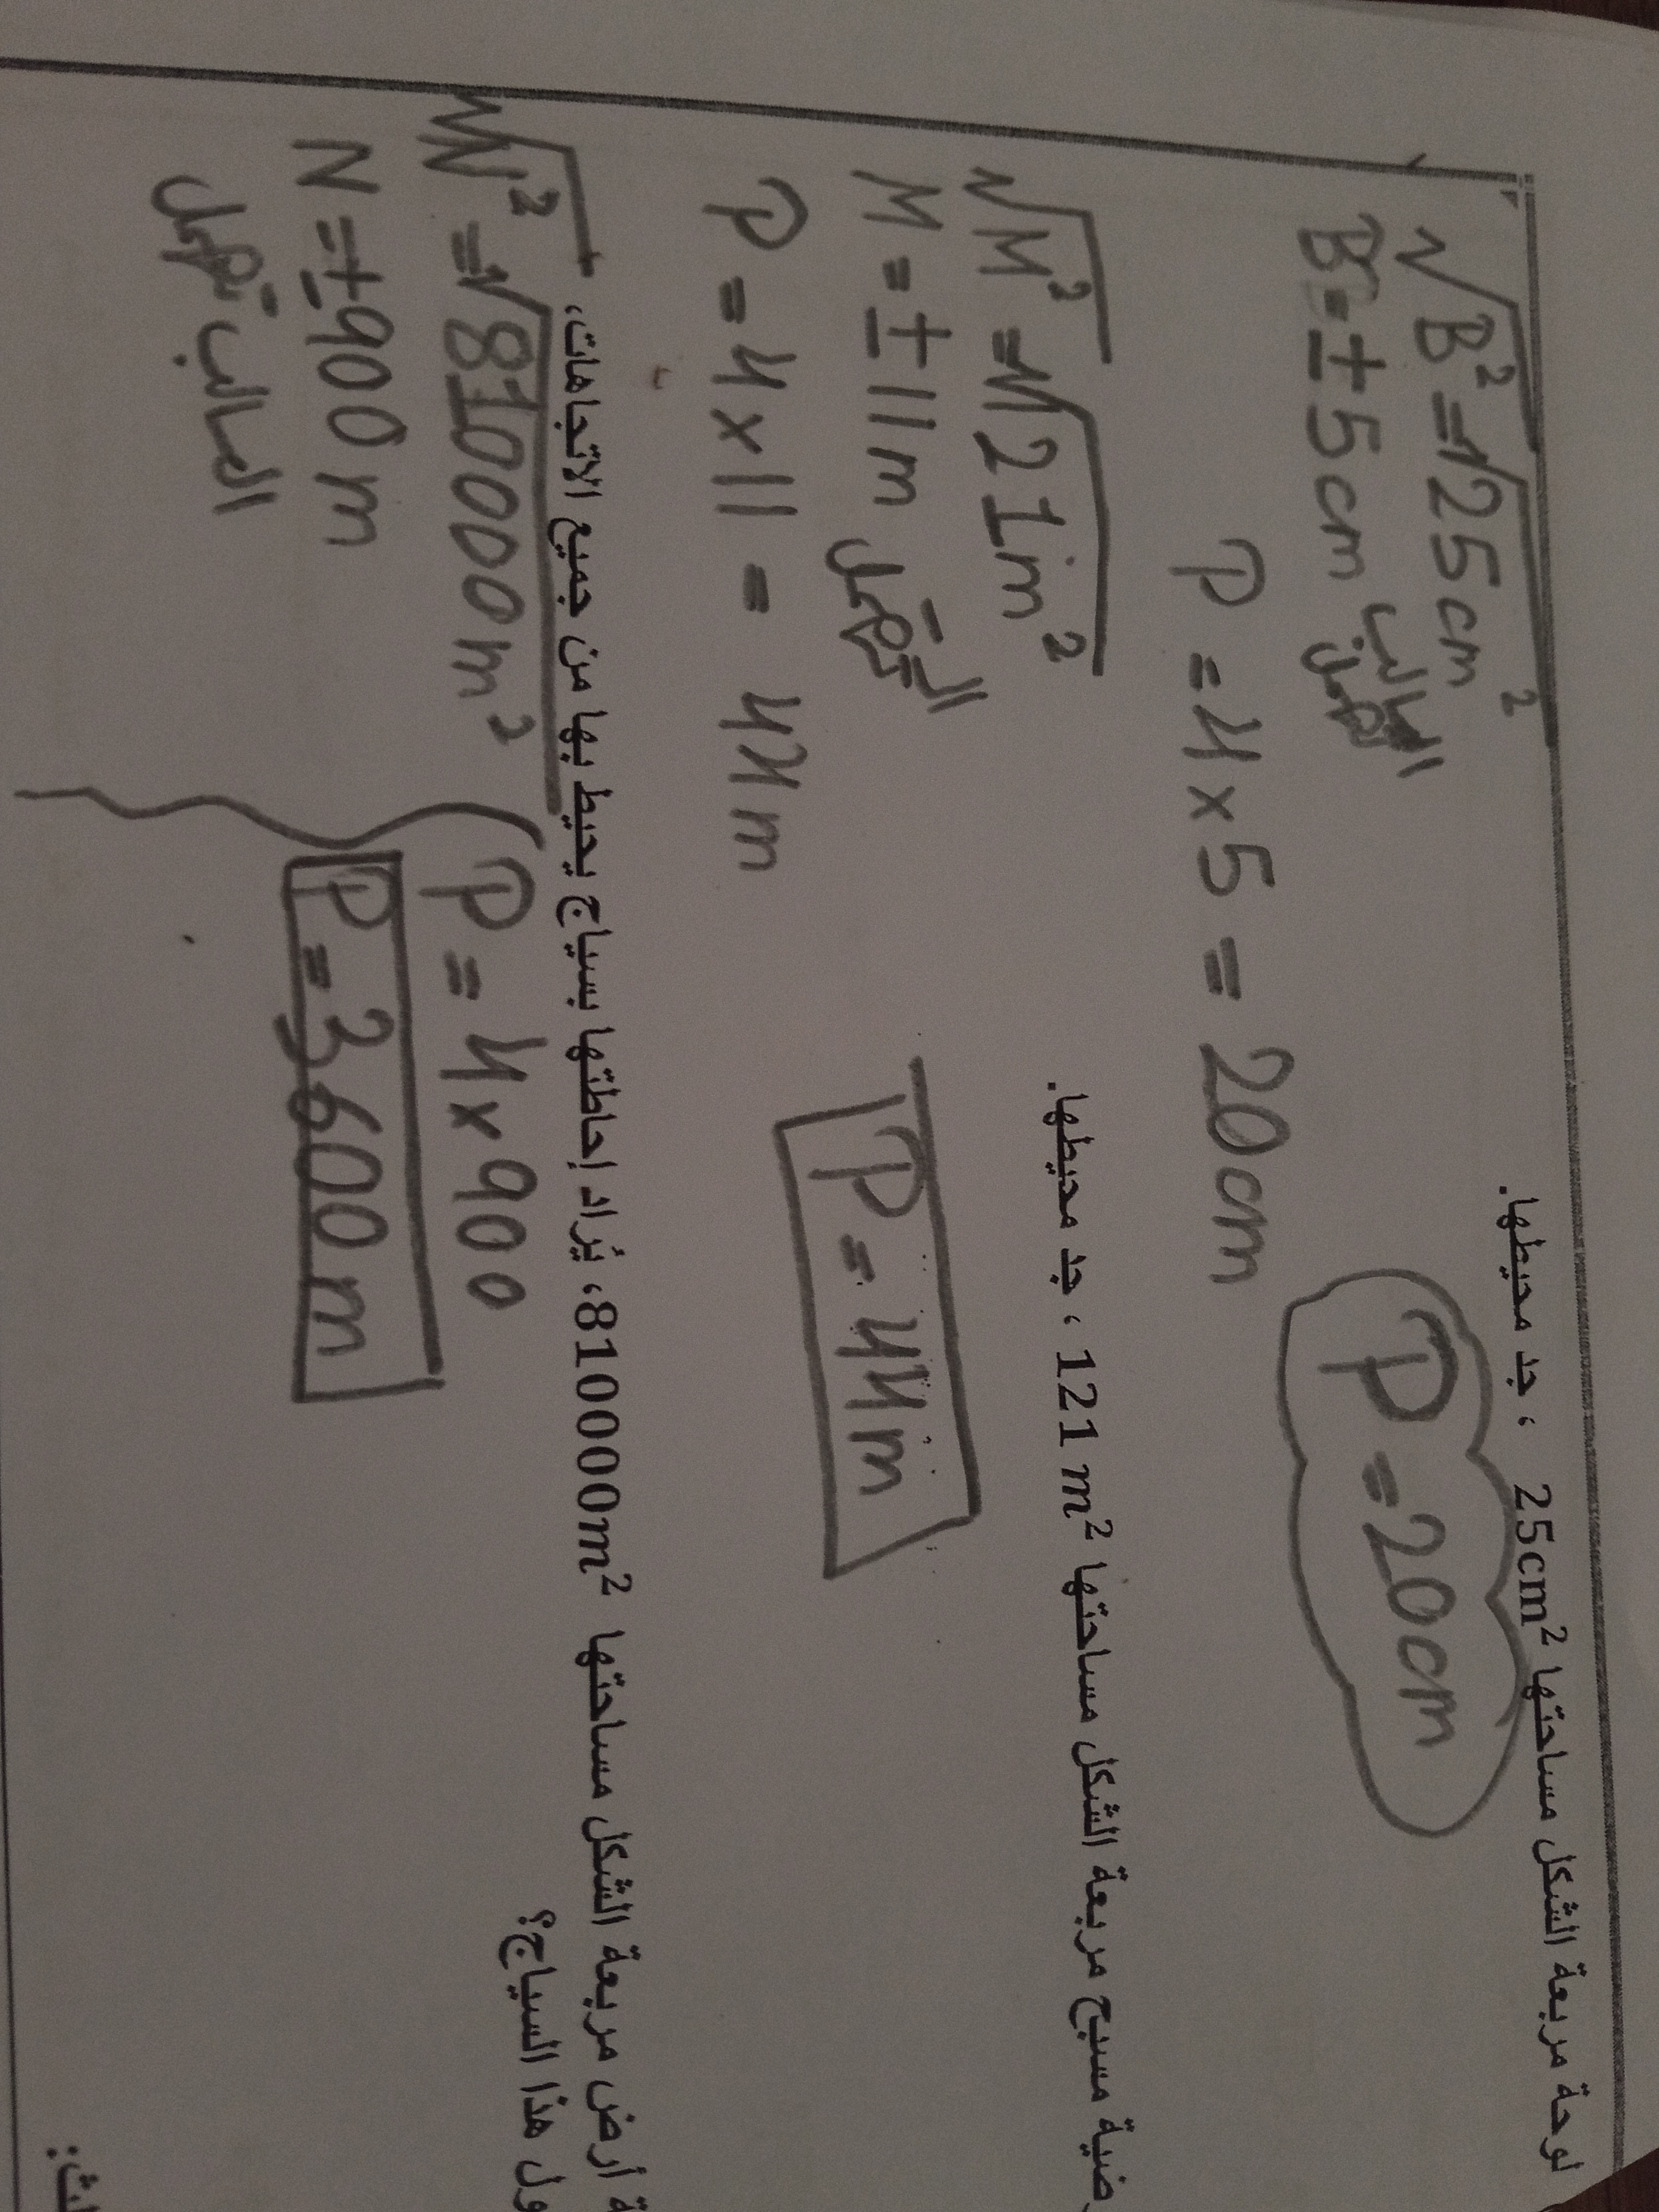 لوحة مربعة الشكل مساحتها 25cm² ، جد محيطها.
√B² = √25cm²
B = ± 5cm السالب يهمل
P = 4 × 5 = 20cm
P = 20cm
ضية مسبح مربعة الشكل مساحتها 121 m² ، جد محيطها.
√M² = √121m²
M = ± 11m
P = 4 × 11 = 44m
P = 44m
ة أرض مربعة الشكل مساحتها 810000m²، يُراد إحاطتها بسياج يحيط بها من جميع الاتجاهات،
ول هذا السياج؟
√N² = √810000m²
N = ± 900m
السالب يهمل
P = 4 × 900
P = 3600m